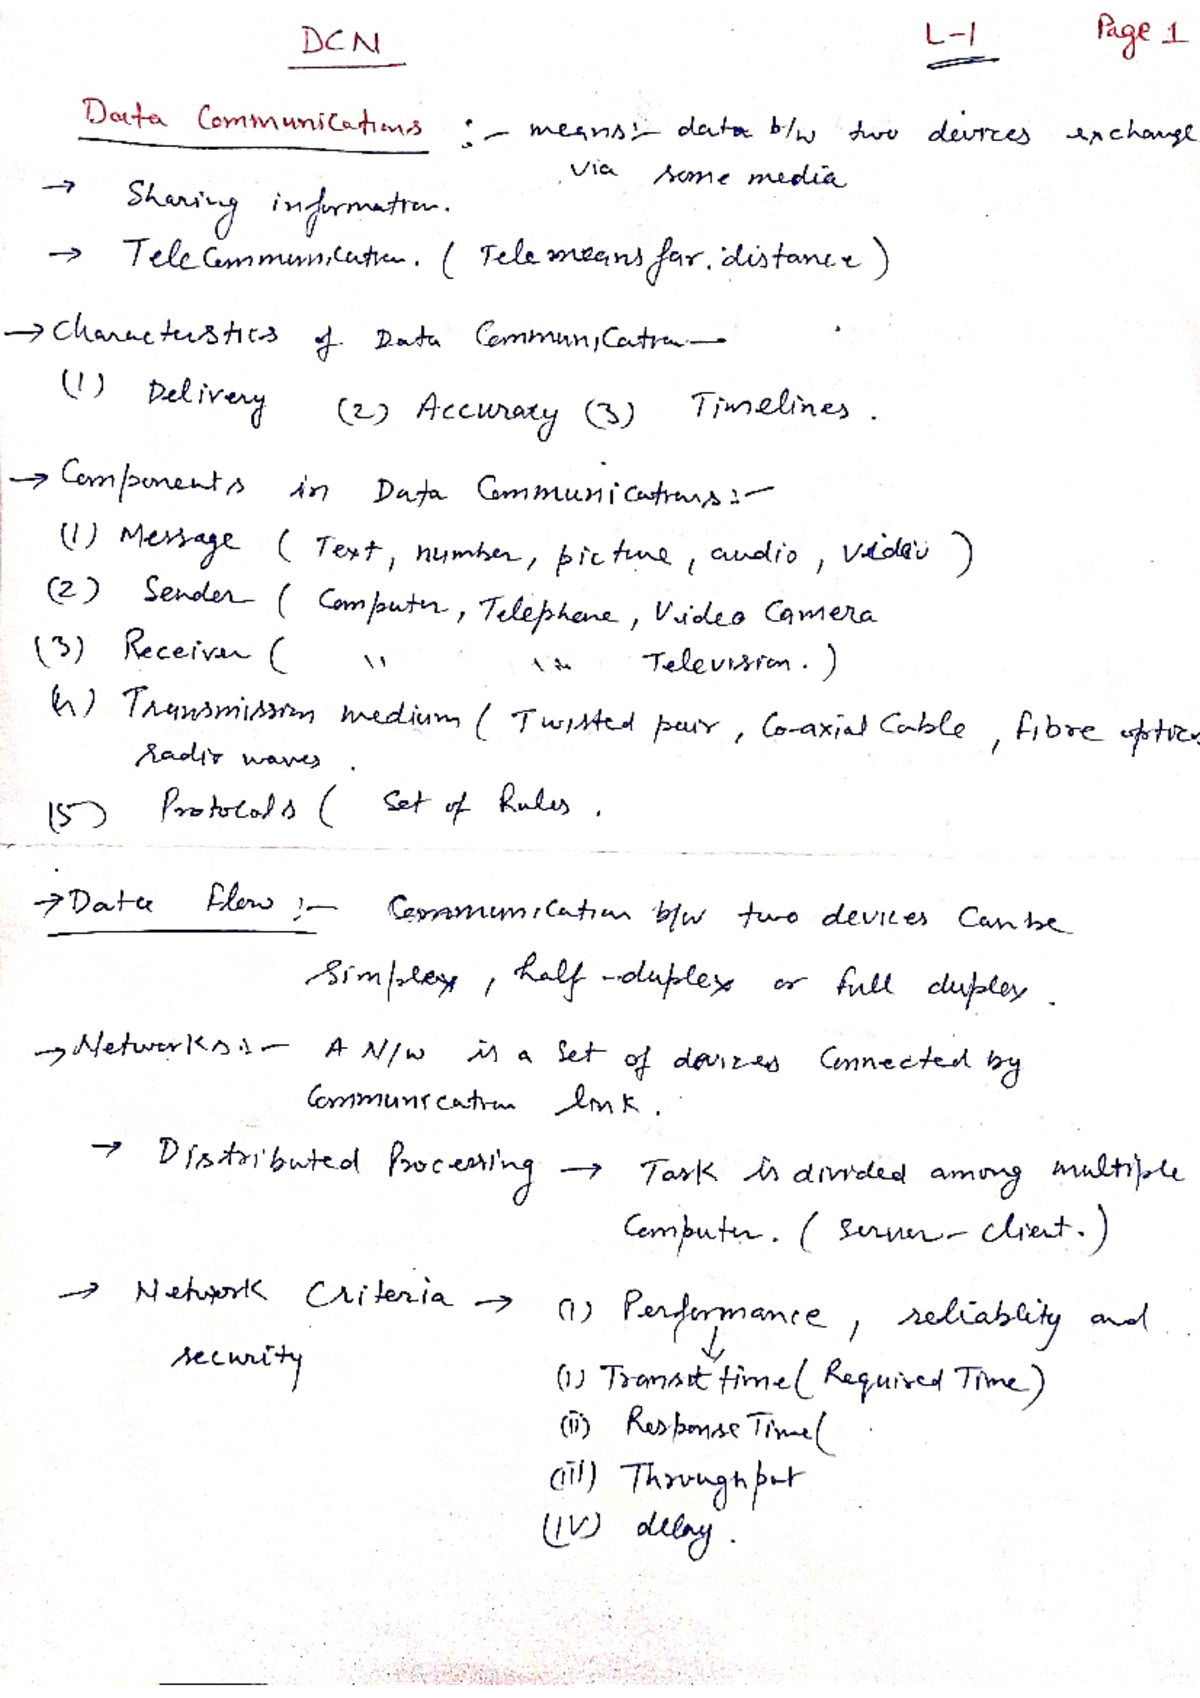 DCN L-1 Page 1
Data Communications :- means:- data b/w two devices exchange
via some media
→ Sharing information.
→ TeleCommunication. ( Tele means far. distance )
→ Characteristics of Data Communication —
(1) Delivery (2) Accuracy (3) Timelines .
→ Components in Data Communications :-
(1) Message ( Text, number, picture, audio, video )
(2) Sender ( Computer, Telephone, Video Camera
(3) Receiver ( " " Television. )
(4) Transmission medium ( Twisted pair, Co-axial Cable, fibre optics
radio waves .
(5) Protocols ( Set of Rules .
→ Data flow :- Communication b/w two devices can be
simplex, half-duplex or full duplex .
→ Networks :- A N/W is a Set of devices Connected by
Communication link .
→ Distributed Processing → Task is divided among multiple
Computer. ( server - client. )
→ Network Criteria → (1) Performance, reliablity and
security
↓
(i) Transit time ( Required Time )
(ii) Response Time (
(iii) Throughput
(iv) delay .